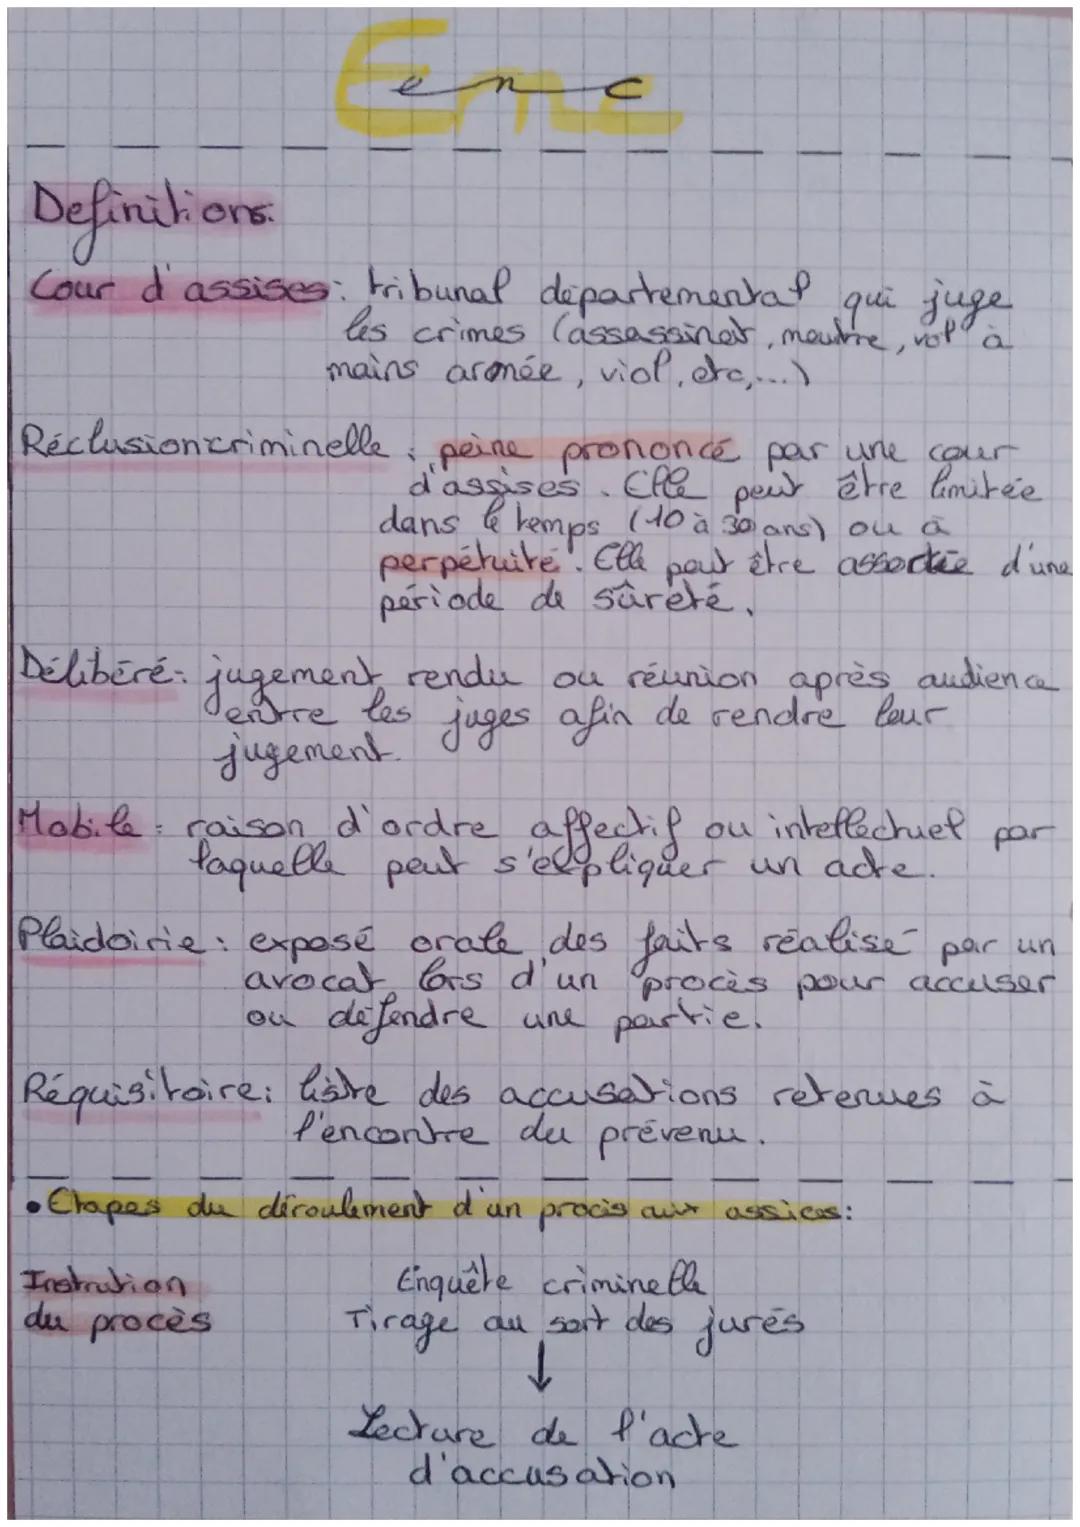 Emc
emc
Definitions:
Cour d'assises: tribunal départemental qui juge
les crimes (assassinat, meutre, vol à
mains armée, viol, etc,...)
Réclusion criminelle: peine prononcé par une cour
d'assises. Elle peut être limitée
dans le temps (10 à 30 ans) ou à
perpétuité. Elle peut être assortie d'une
période de sûreté.
Délibéré: jugement rendu ou réunion après audience
entre les juges afin de rendre leur
jugement.
Mobile: raison d'ordre affectif ou intellectuel par
laquelle peut s'expliquer un acte.
Plaidoirie: exposé orale des faits réalisé par un
avocat lors d'un procès pour accuser
ou défendre une partie.
Réquisitoire: liste des accusations retenues à
l'encontre du prévenu.
• Etapes du déroulement d'un procès aux assices:
Instrution Enquête criminelle
du procès Tirage au sort des jurés
↓
Lecture de l'acte
d'accusation